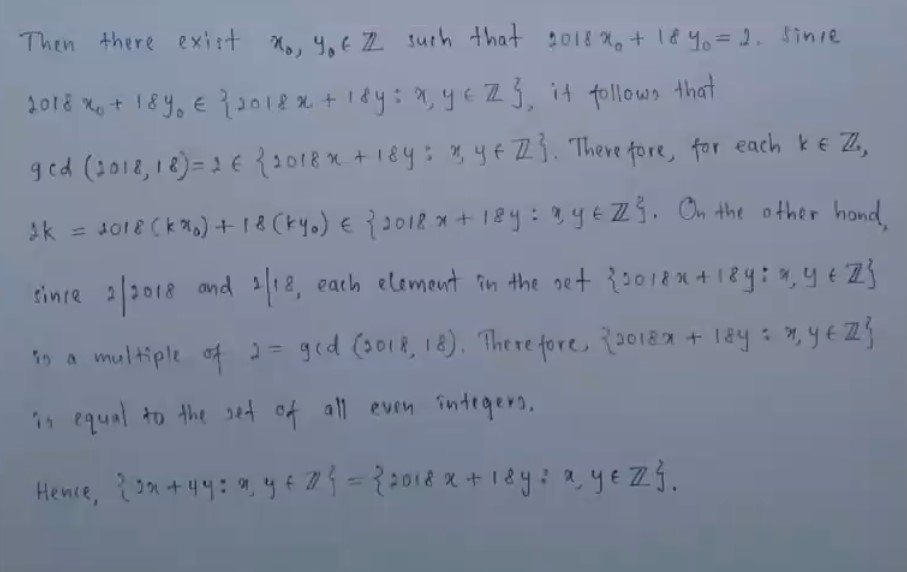 Then there exist x₀, y₀ ∈ ℤ such that 2018 x₀ + 18 y₀ = 2. Since
2018 x₀ + 18 y₀ ∈ {2018 x + 18y : x, y ∈ ℤ}, it follows that
gcd (2018, 18) = 2 ∈ {2018 x + 18y : x, y ∈ ℤ}. Therefore, for each k ∈ ℤ,
2k = 2018 (kx₀) + 18 (ky₀) ∈ {2018 x + 18y : x, y ∈ ℤ}. On the other hand,
since 2|2018 and 2|18, each element in the set {2018x + 18y : x, y ∈ ℤ}
is a multiple of 2 = gcd (2018, 18). Therefore, {2018x + 18y : x, y ∈ ℤ}
is equal to the set of all even integers.
Hence, {2x + 4y : x, y ∈ ℤ} = {2018 x + 18y : x, y ∈ ℤ}.